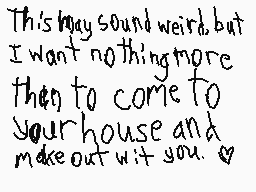 This may sound weird, but
I want nothing more
than to come to
your house and
make out wit you. ♡